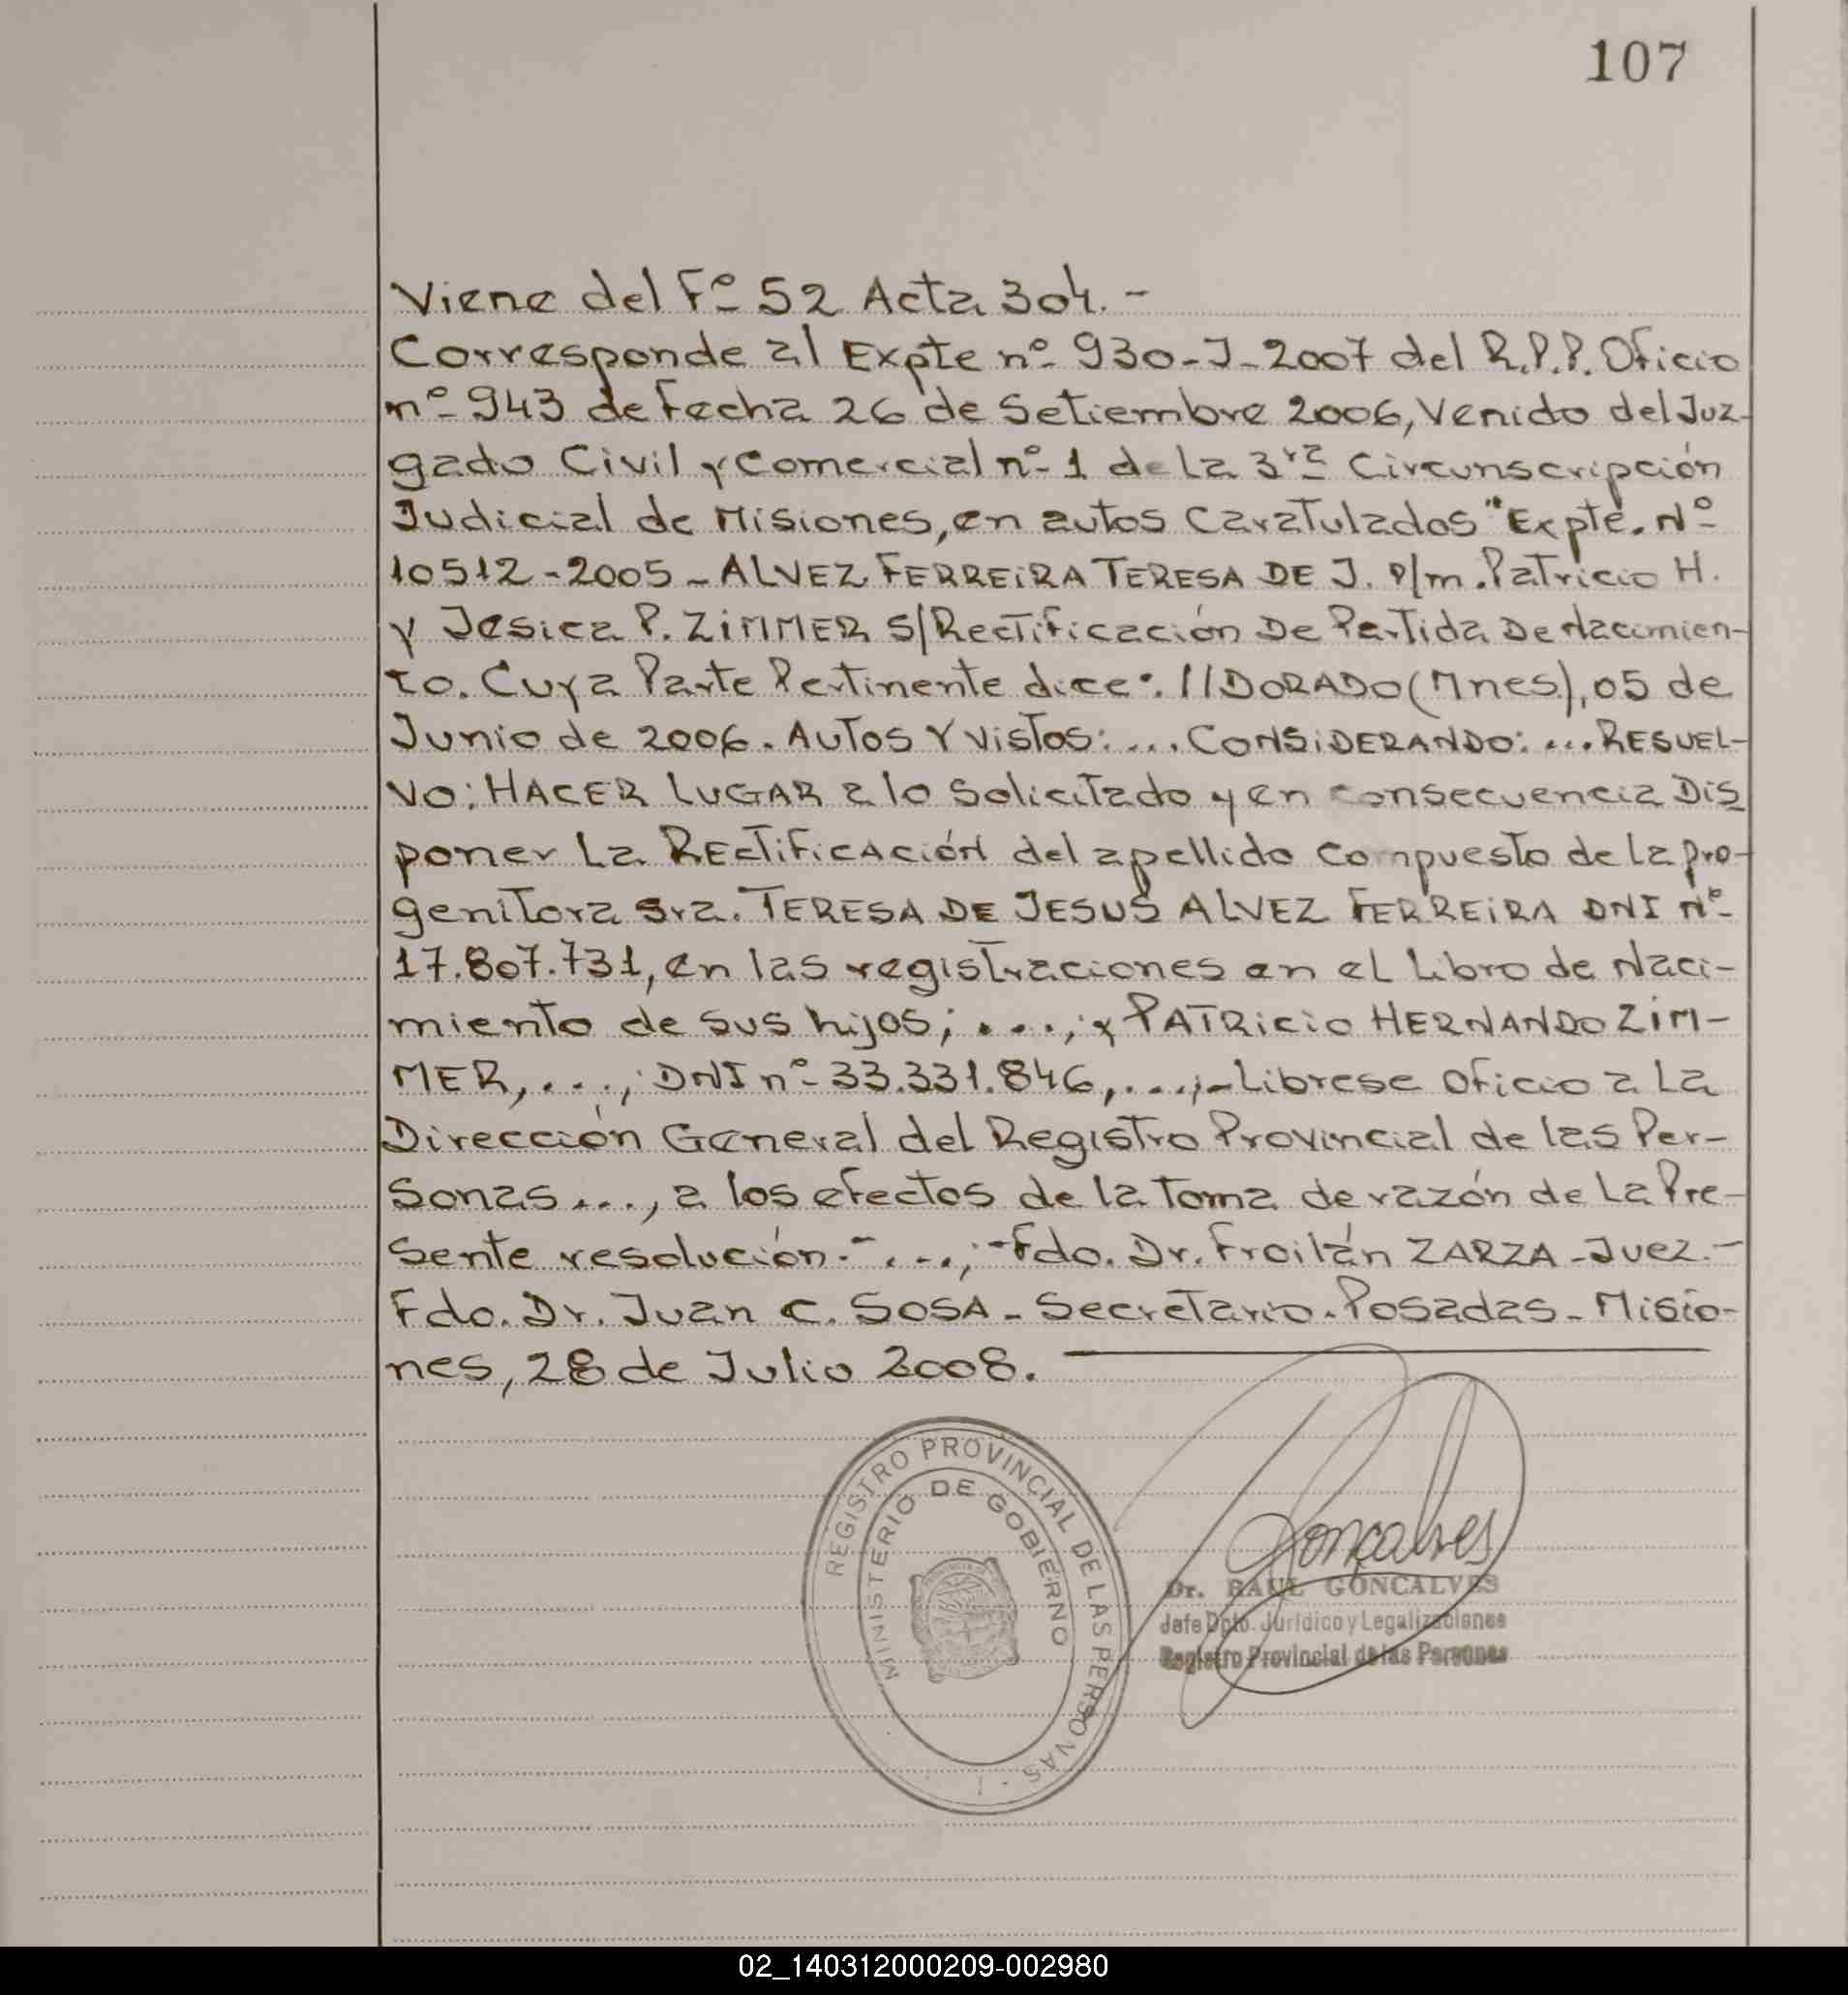 107
Viene del Fº 52 Acta 304.-
Corresponde al Expte nº 930-J-2007 del R.P.P. Oficio
nº 943 de Fecha 26 de Setiembre 2006, Venido del Juz-
gado Civil y Comercial nº 1 de La 3ra Circunscripción
Judicial de Misiones, en autos Caratulados "Expte. Nº
10512-2005-ALVEZ FERREIRA TERESA DE J. P/m. Patricio H.
y Jesica P. ZIMMER S/Rectificación De Partida De Nacimien-
to. Cuya Parte Pertinente dice: //DORADO (Mnes), 05 de
Junio de 2006. AUTOS Y VISTOS: ... CONSIDERANDO: ... RESUEL-
VO: HACER LUGAR a lo Solicitado y en consecuencia Dis
poner La RECTIFICACIÓN del apellido compuesto de La pro-
genitora Sra. TERESA DE JESUS ALVEZ FERREIRA DNI Nº
17.807.731, en las registraciones en el Libro de Naci-
miento de sus hijos; ...., y PATRICIO HERNANDO ZIM-
MER, ..., DNI nº 33.331.846, ...;-Librese Oficio a La
Dirección General del Registro Provincial de las Per-
sonas..., a los efectos de la Toma de razón de La Pre-
sente resolución.- ...,;-Fdo. Dr. Froilán ZARZA-Juez.-
Fdo. Dr. Juan C. SOSA-Secretario-Posadas-Misio-
nes, 28 de Julio 2008.
REGISTRO PROVINCIAL DE LAS PERSONAS
MINISTERIO DE GOBIERNO
Gonçalves
Dr. RAUL GONCALVES
Jefe Dpto. Jurídico y Legalizaciones
Registro Provincial de las Personas
02_140312000209-002980